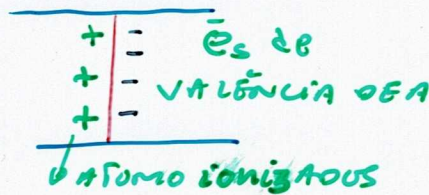 + - ēs de
+ - VALÊNCIA DE A
+ -
-
ÁTOMO IONIZADOS